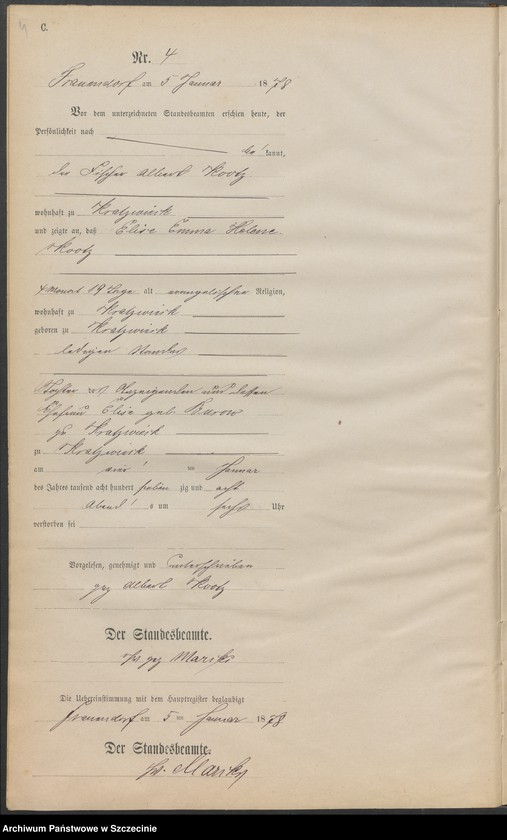 C.
Nr. 4
Frauendorf am 5 Januar 1878
Vor dem unterzeichneten Standesbeamten erschien heute, der
Persönlichkeit nach
bekannt,
der Fischer Albert Kootz
wohnhaft zu Kratzwieck
und zeigte an, daß Elise Emma Helene
Kootz
4 Monat 19 Tage alt evangelischer Religion,
wohnhaft zu Kratzwieck
geboren zu Kratzwieck
ledigen Standes
Tochter des Anzeigenden und dessen
Ehefrau Elise geb.
zu Kratzwieck
zu Kratzwieck
am Januar
des Jahres tausend acht hundert sieben zig und acht
Abends um sechs Uhr
verstorben sei
Vorgelesen, genehmigt und unterschrieben
gez Albert Kootz
Der Standesbeamte.
gez
Die Uebereinstimmung mit dem Hauptregister beglaubigt
Frauendorf am 5 ten Januar 1878
Der Standesbeamte.
Archiwum Państwowe w Szczecinie